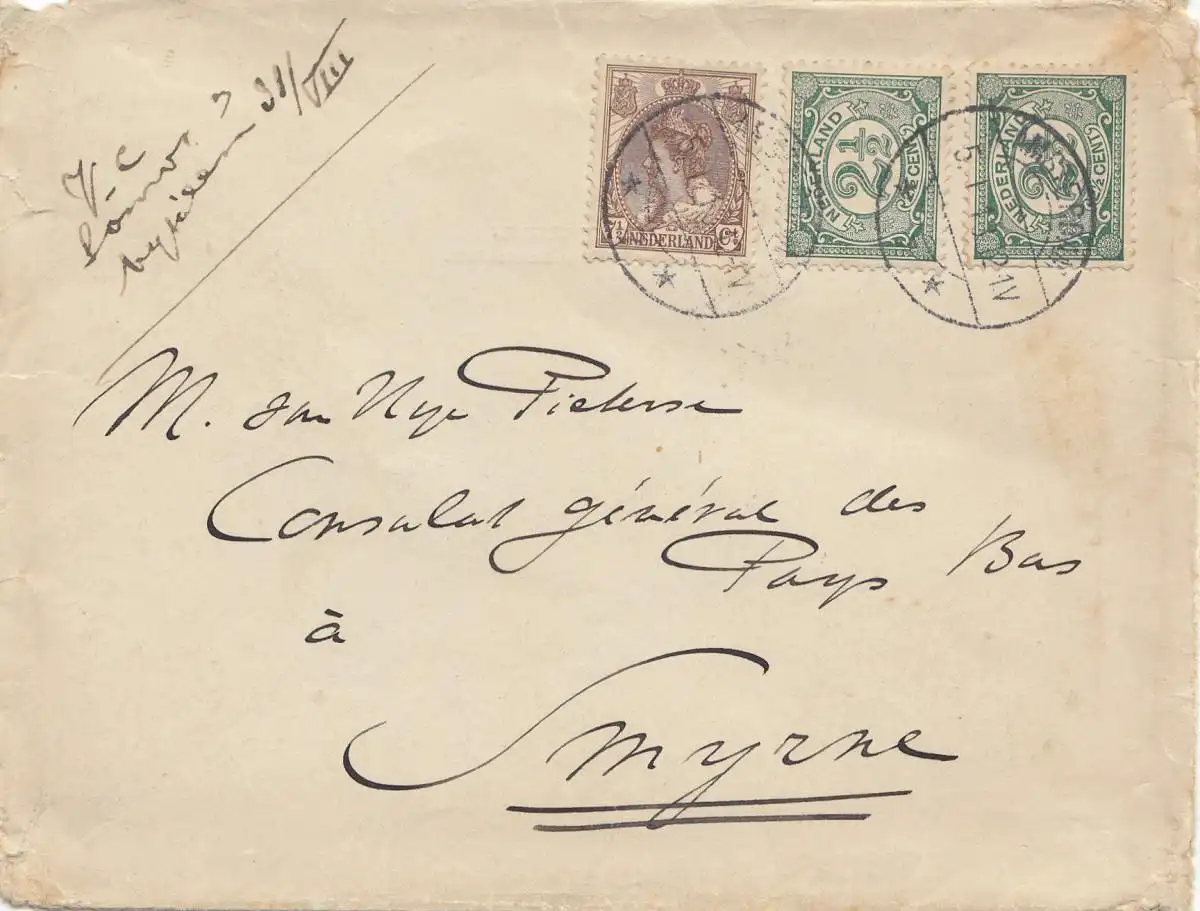 31/VIII
7½ NEDERLAND Ct
NEDERLAND 2½ CENT
NEDERLAND 2½ CENT
M. van Nye Pieterse
Consulat général des
Pays Bas
à
Smyrne